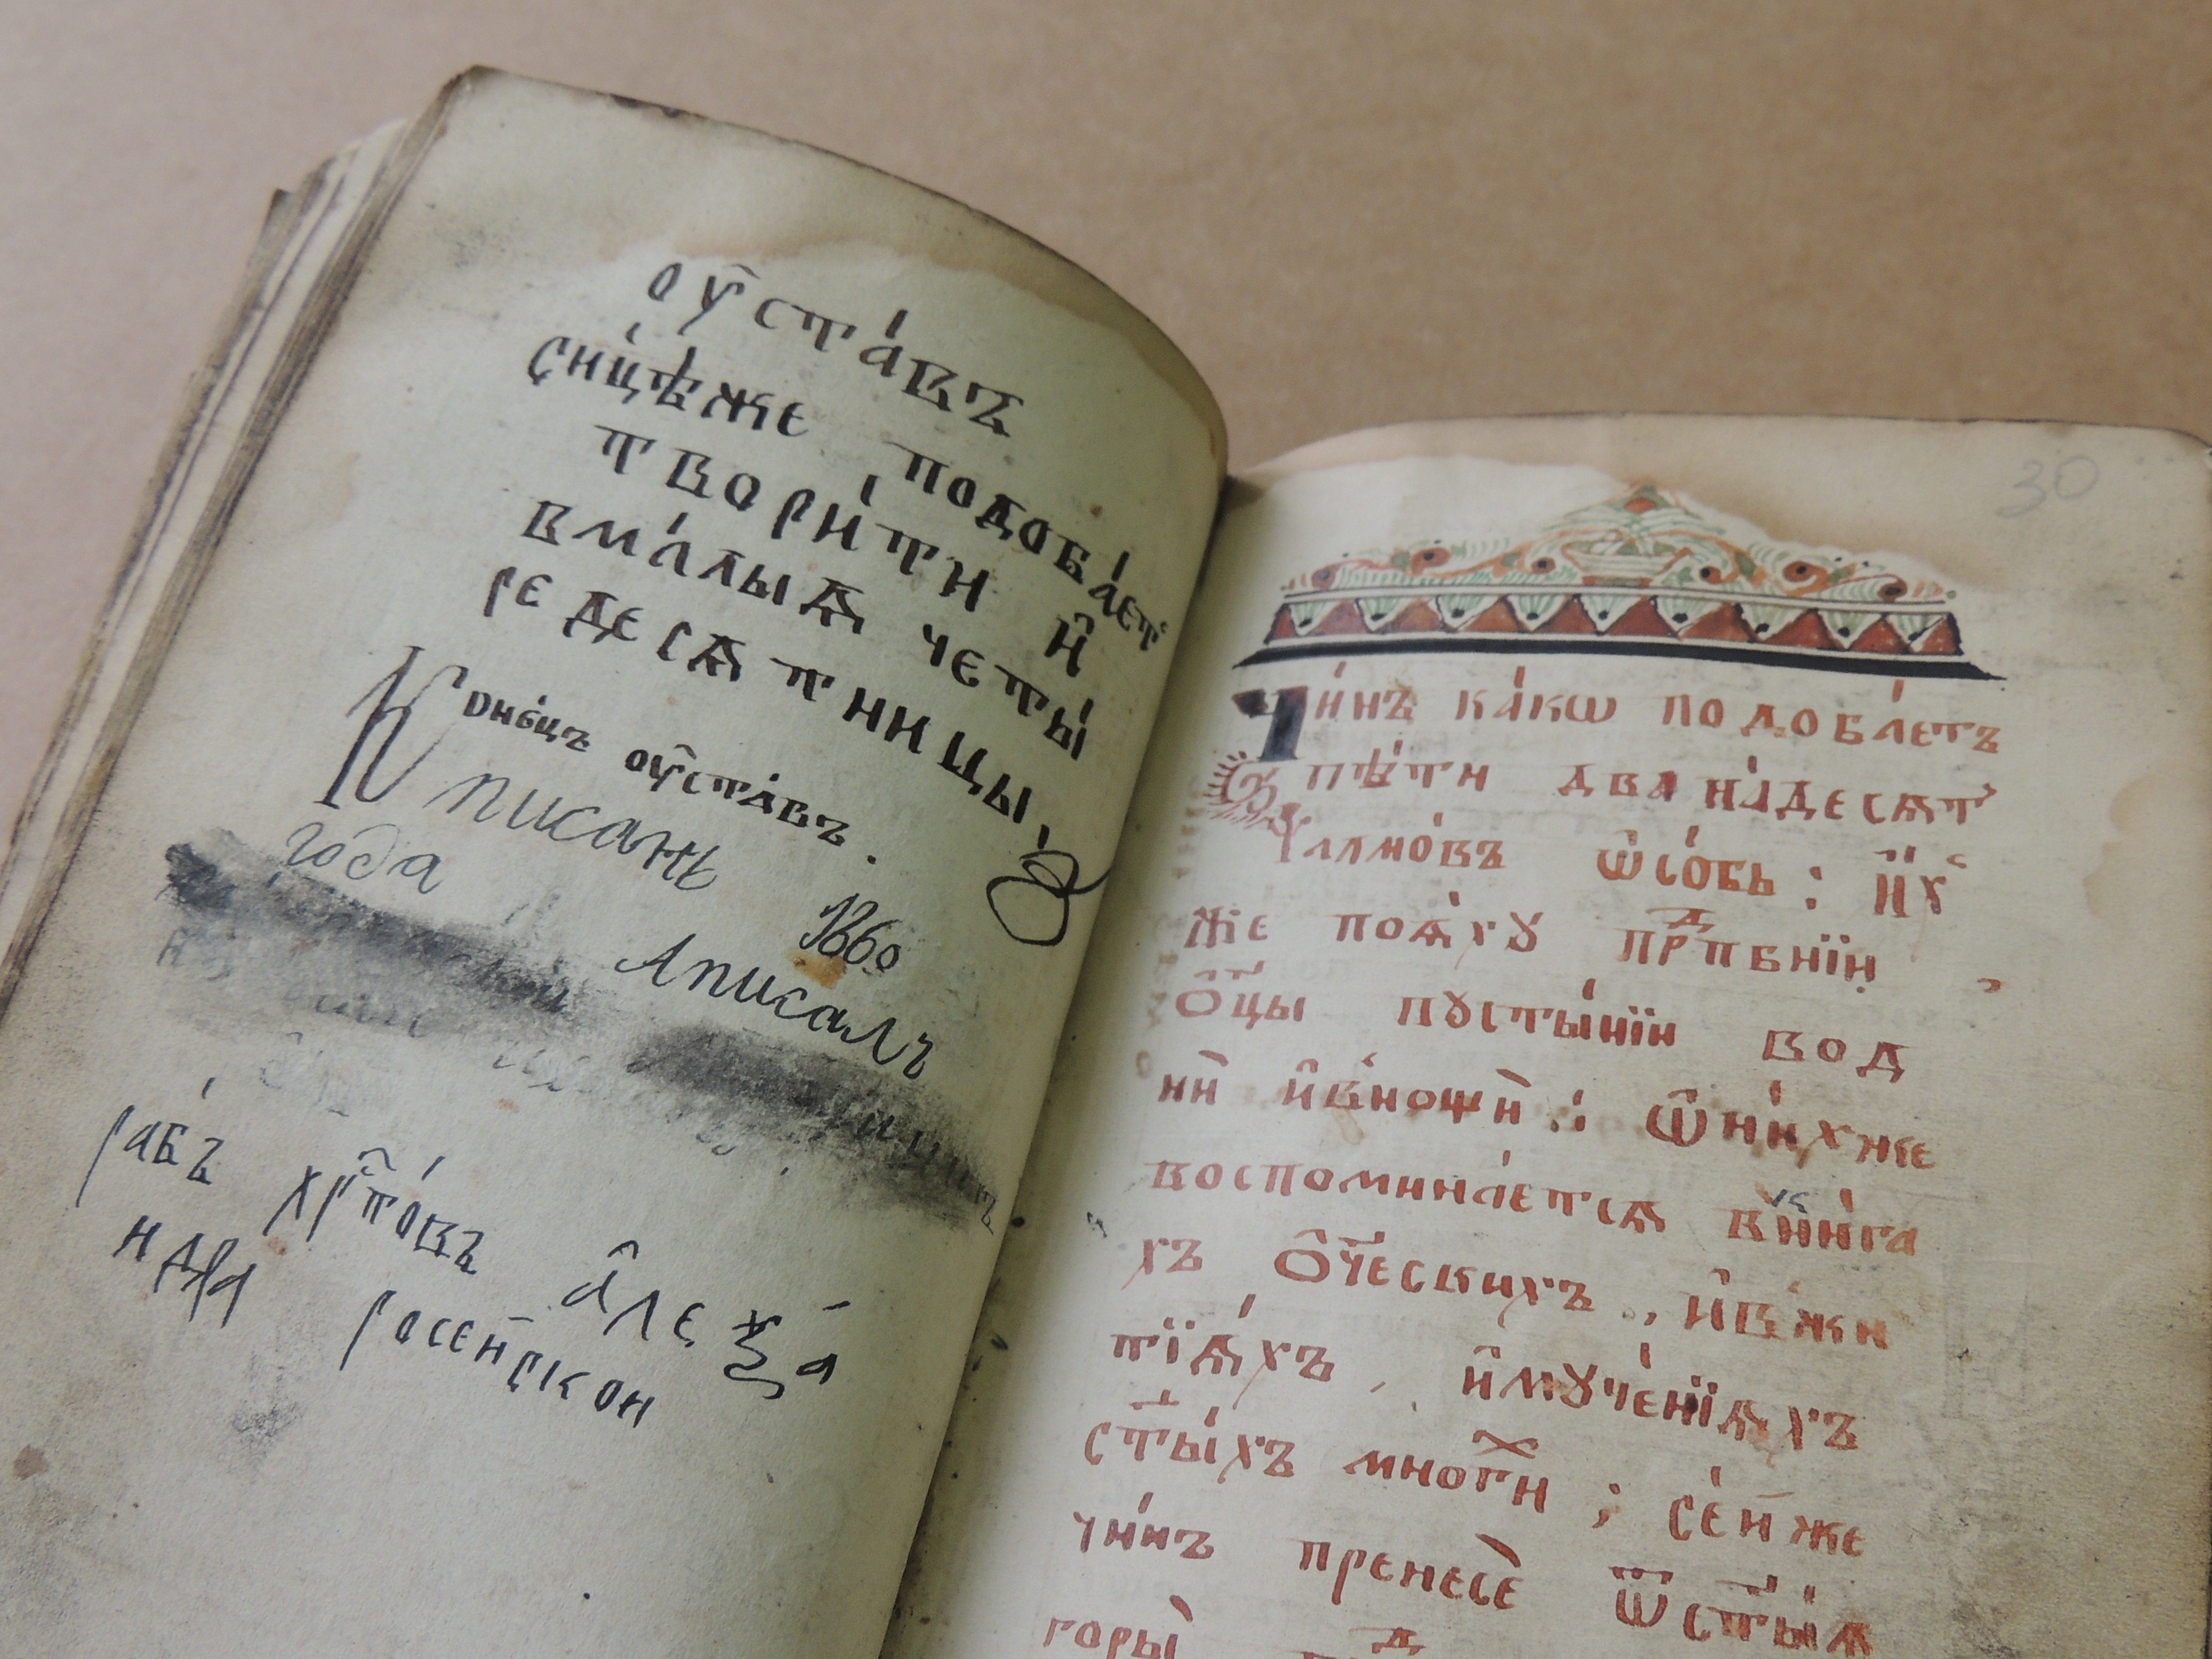 оу҆ста́въ
си́цѣже подоба́етъ
твори́ти и҆
вма́лыѧ четы́
редесѧтницы,
Коне́цъ оу҆ста́въ.
писанъ 1860
года Аписалъ
рабъ хрⷭ҇то́въ а҆леѯа́
ндра росенскои
30
Чи́нъ ка́кѡ подоба́етъ
пѣ́ти двана́десѧт
ѱалмо́въ ѿсо́бь : и҆̀хꙋ
же поѧ́хꙋ прⷣпбнїи
ѻ҆ц҃ы пꙋсты́нїи вод
ни҆ и҆в̾нощѝ : ѿни́хже
воспомина́етсѧ вкни́га
хъ ѻ҆ч҃ескихъ , и҆в̾жи
тїѧ́хъ , и҆мꙋче́нїѧхъ
ст҃ы́хъ многⷯи ; се́йже
чи́нъ пренесѐ ѿст҃ы́ѧ
горы̀